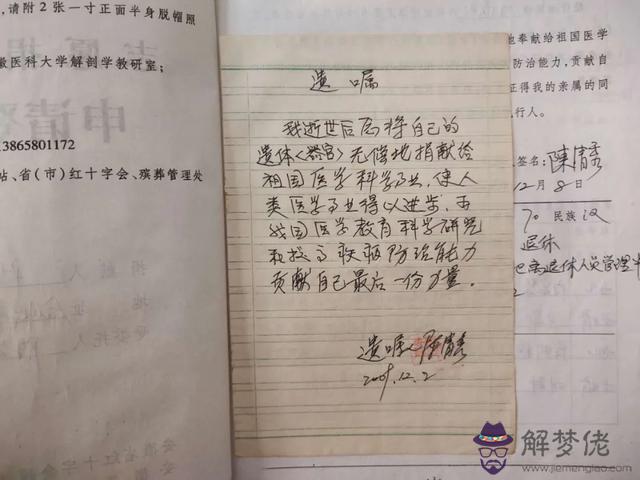 ,请附2张一寸正面半身脱帽照
徽医科大学解剖学教研室;
13865801172
站、省(市)红十字会、殡葬管理处
申请
遗嘱
我逝世后愿将自己的
遗体(器官)无偿地捐献给
祖国医学科学事业,使人
类医学事业得以进步,为
我国医学教育科学研究
和提高疾病防治能力
贡献自己最后一份力量。
遗嘱人
2009.12.2
地奉献给祖国医学
防治能力,贡献自
证得我的亲属的同
行人。
签名:陈清秀
12月8日
70 民族 汉
退休
离退休人员管理
解梦佬
www.jiemenglao.com